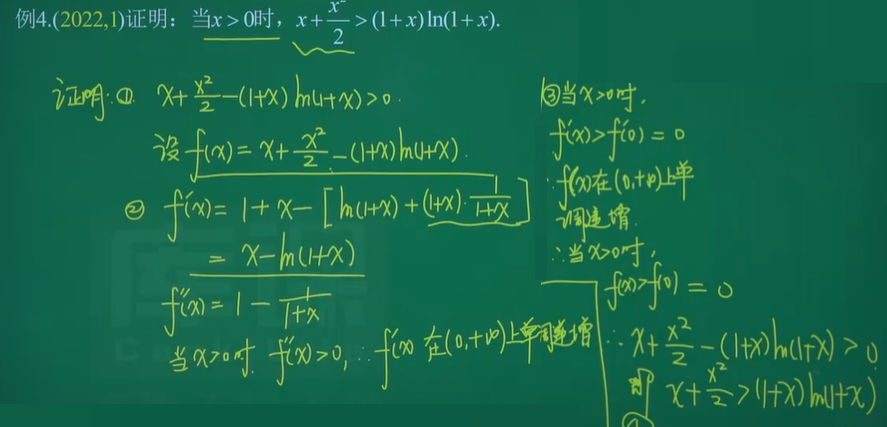 例4.(2022,1)证明：当x>0时，x+x²/2>(1+x)ln(1+x).
证明:① x+x²/2-(1+x)ln(1+x)>0.
设f(x)=x+x²/2-(1+x)ln(1+x).
② f'(x)=1+x-[ln(1+x)+(1+x)·1/(1+x)]
=x-ln(1+x)
f''(x)=1-1/(1+x)
当x>0时. f''(x)>0,∴f'(x)在(0,+∞)上单调递增
③当x>0时，
f'(x)>f'(0)=0
∴f(x)在(0,+∞)上单
调递增.
∴当x>0时，
f(x)>f(0)=0
∴x+x²/2-(1+x)ln(1+x)>0
即 x+x²/2>(1+x)ln(1+x)